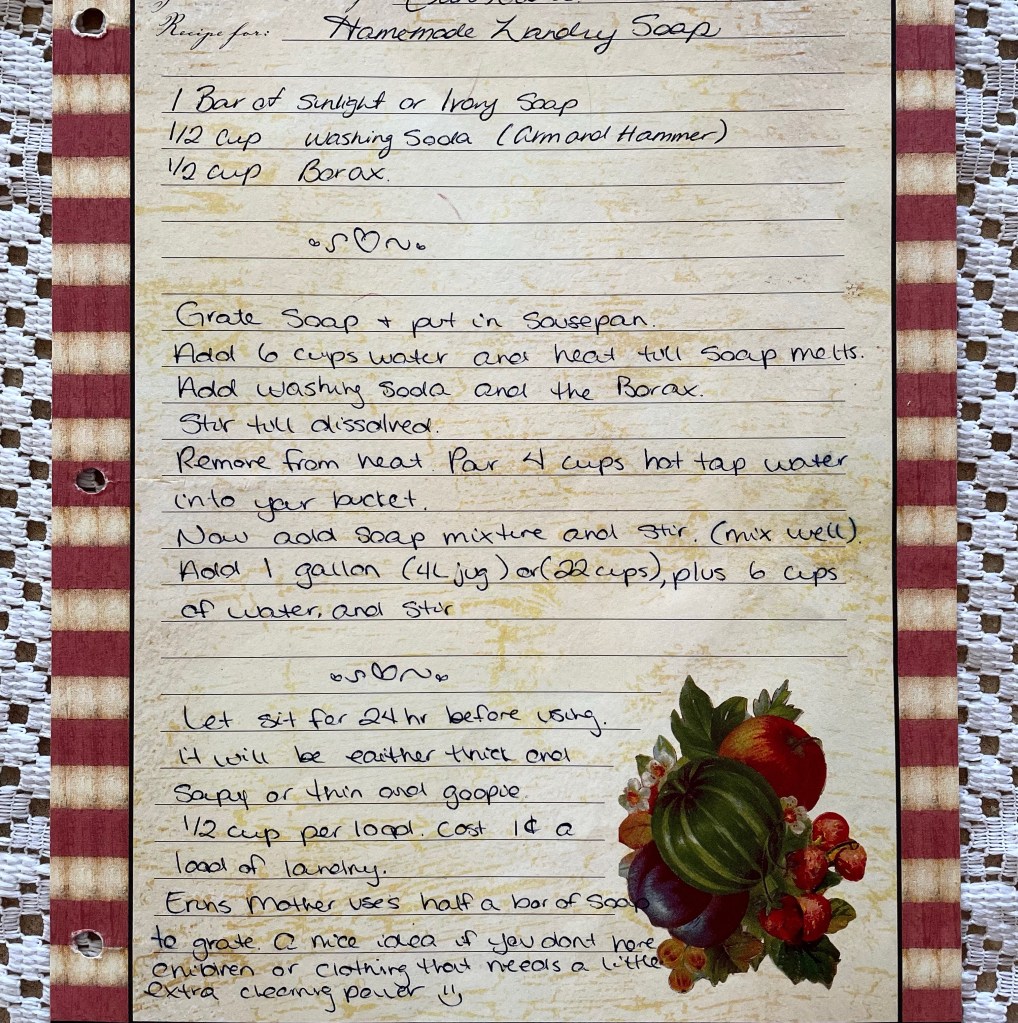 Recipe for: Homemade Landry Soap
1 Bar of Sunlight or Ivory Soap
1/2 cup washing Soda (Arm and Hammer)
1/2 cup Borax.
Grate Soap + put in Sousepan.
Add 6 cups water and heat till Soap melts.
Add washing Soda and the Borax.
Stir till dissolved.
Remove from heat. Por 4 cups hot tap water
into your bucket.
Now add soap mixture and stir. (mix well).
Add 1 gallon (4L jug) or (22 cups), plus 6 cups
of water, and stir
Let sit for 24 hr before using.
it will be eaither thick and
Soapy or thin and goopie.
1/2 cup per load. Cost 1¢ a
load of landry.
Erins Mother uses half a bar of Soap
to grate. A nice idea if you dont have
children or clothing that needs a little
extra cleaning power